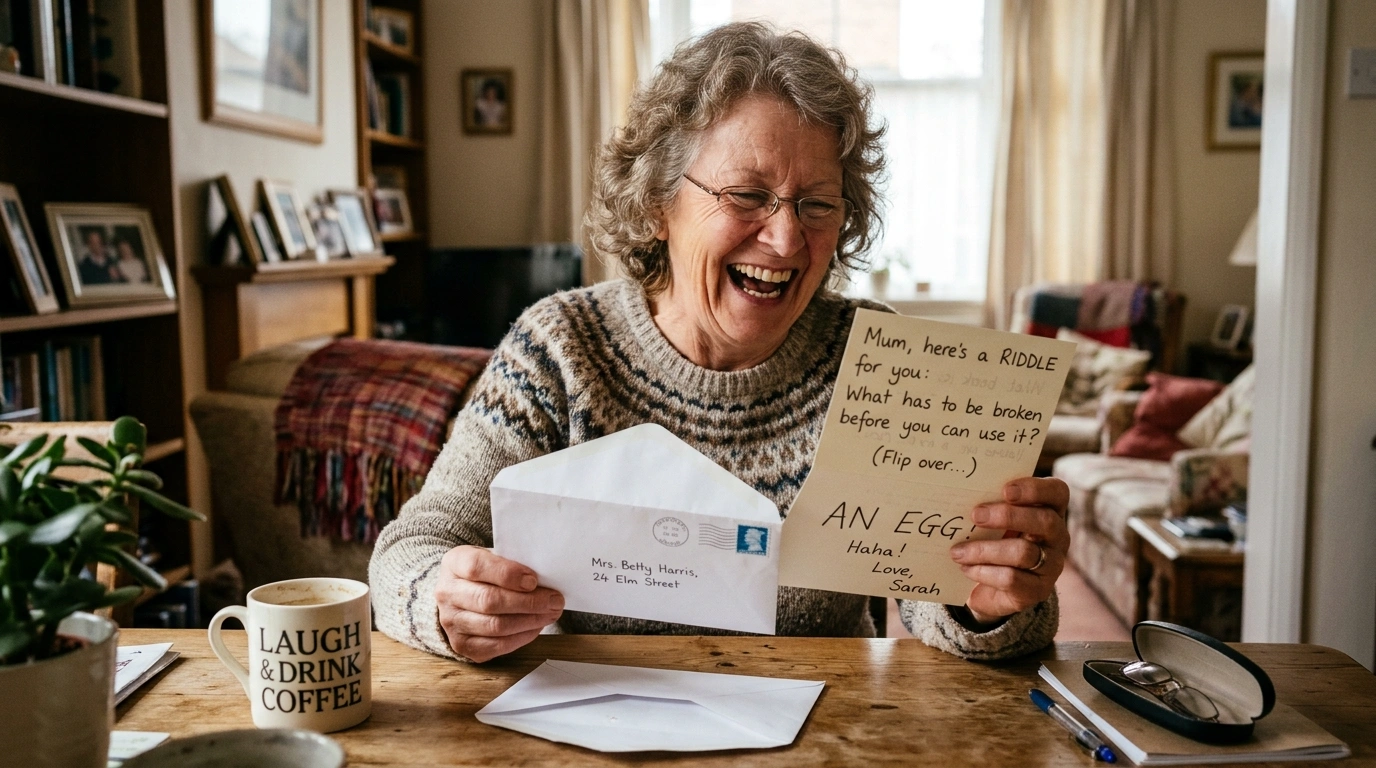 Mum, here's a RIDDLE
for you:
What has to be broken
before you can use it?
(Flip over...)
AN EGG!
Haha!
Love,
Sarah
Mrs. Betty Harris,
24 Elm Street
LAUGH
& DRINK
COFFEE